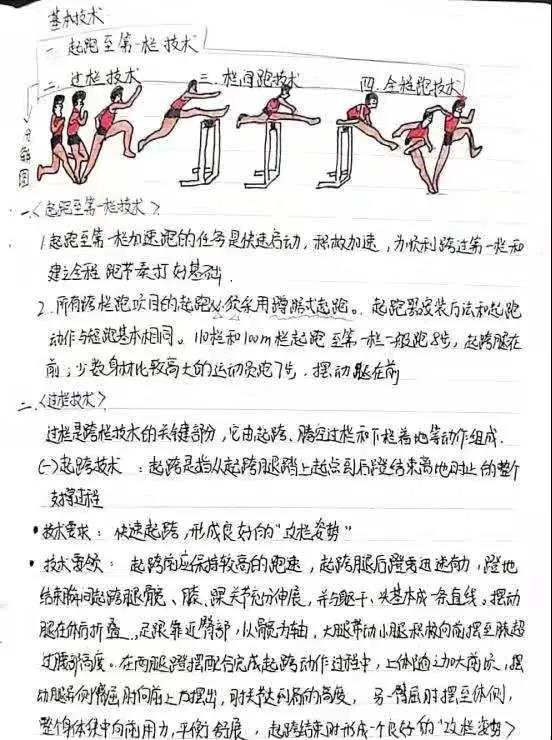 基本技术
一. 起跑至第一栏技术
二. 过栏技术 三. 栏间跑技术 四. 全程跑技术
分解图
一.〈起跑至第一栏技术〉
1. 起跑至第一栏加速跑的任务是快速启动，积极加速，为顺利跨过第一栏和
建立全程跑节奏打好基础.
2. 所有跨栏跑项目的起跑必须采用蹲踞式起跑。起跑器安装方法和起跑
动作与短跑基本相同。110栏和100m栏起跑至第一栏一般跑8步，起跨腿在
前；少数身材比较高大的运动员跑7步. 摆动腿在前
二.〈过栏技术〉
过栏是跨栏技术的关键部分，它由起跨、腾空过栏和下栏着地等动作组成.
(一)起跨技术：起跨是指从起跨腿踏上起点到后蹬结束离地时止的整个
支撑过程
•技术要求：快速起跨，形成良好的“攻栏姿势”
•技术要领：起跨前应保持较高的跑速，起跨腿后蹬要迅速有力，蹬地
结束瞬间起跨腿髋、膝、踝关节充分伸展，并与躯干、头基本成一条直线。摆动
腿在体后折叠，足跟靠近臀部，以髋为轴，大腿带动小腿积极向前摆至膝超
过腰部高度。在两腿蹬摆配合完成起跨动作过程中，上体随之加大前倾，摆
动腿异侧臂屈肘向前上方摆出，肘关节达到肩的高度，另一臂屈肘摆至体侧，
整个身体集中向前用力，平衡舒展，起跨结束时形成一个良好的“攻栏姿势〉